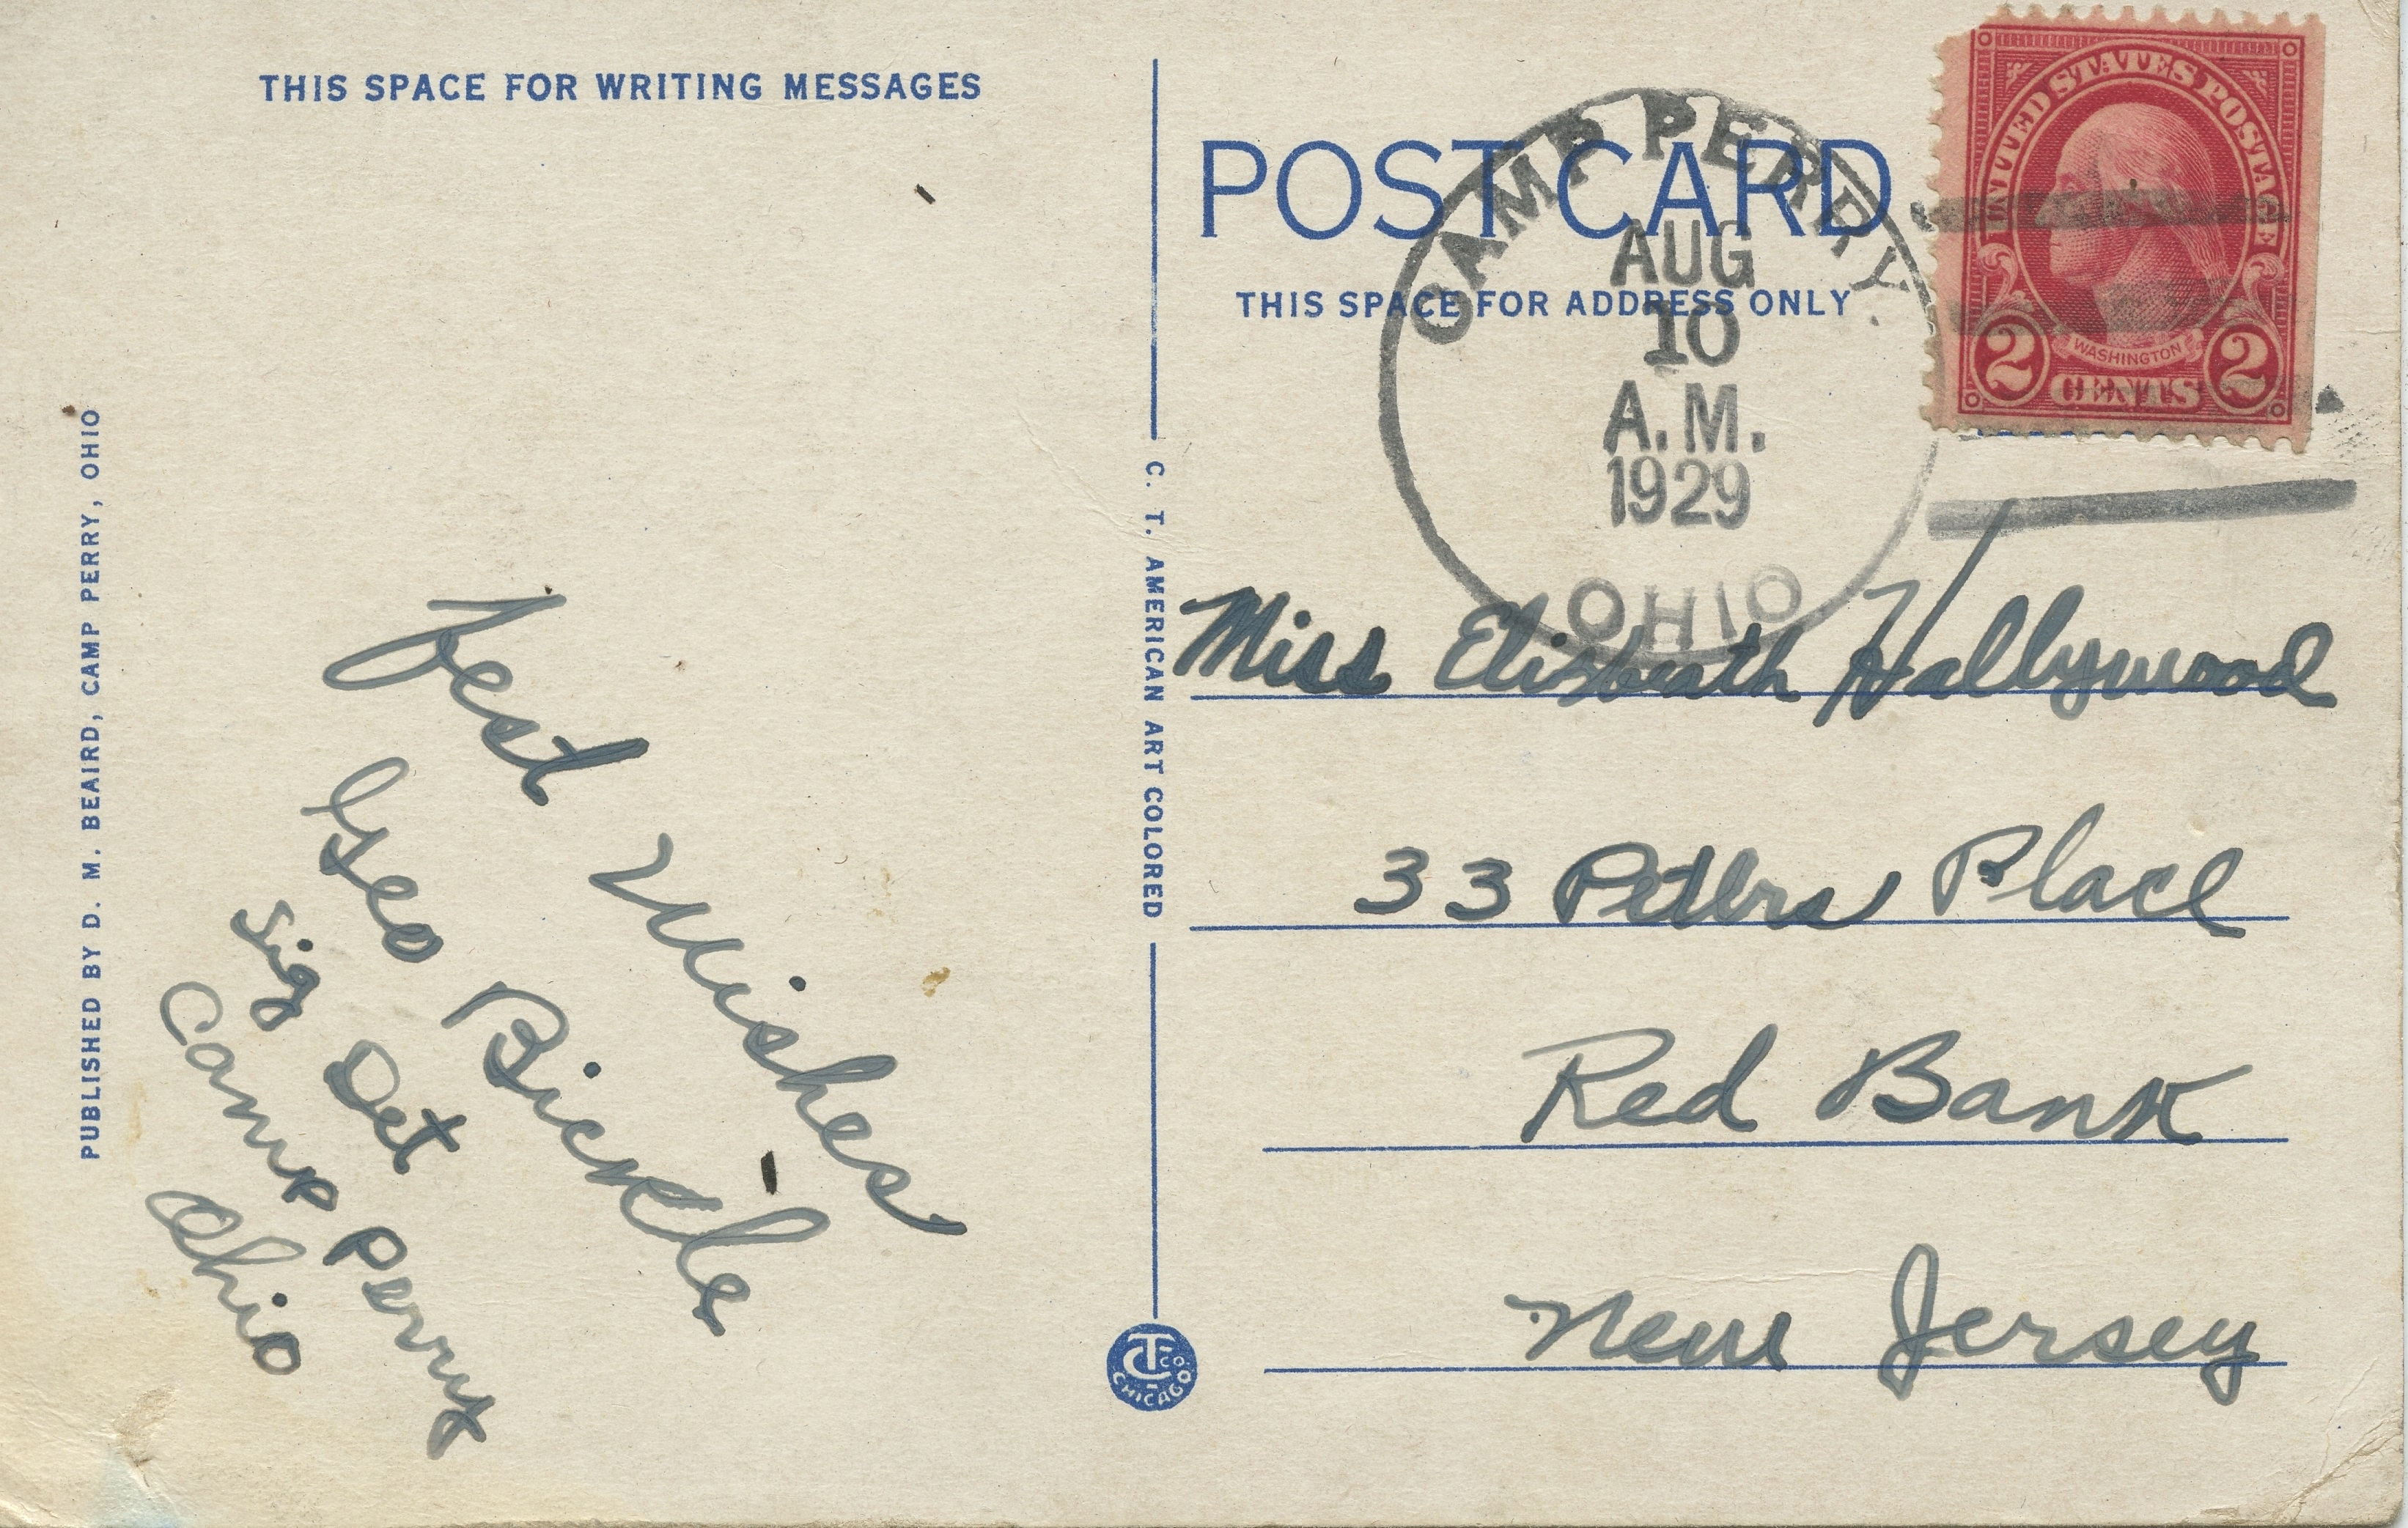 THIS SPACE FOR WRITING MESSAGES
Best Wishes
Geo Bickle
Sig Det
Camp Perry
Ohio
PUBLISHED BY D. M. BEAIRD, CAMP PERRY, OHIO
C. T. AMERICAN ART COLORED
CTCO
CHICAGO
POST CARD
THIS SPACE FOR ADDRESS ONLY
CAMP PERRY
AUG
10
A.M.
1929
OHIO
UNITED STATES POSTAGE
WASHINGTON
2 CENTS 2
Miss Elizbeath Hallywood
33 Peters Place
Red Bank
New Jersey